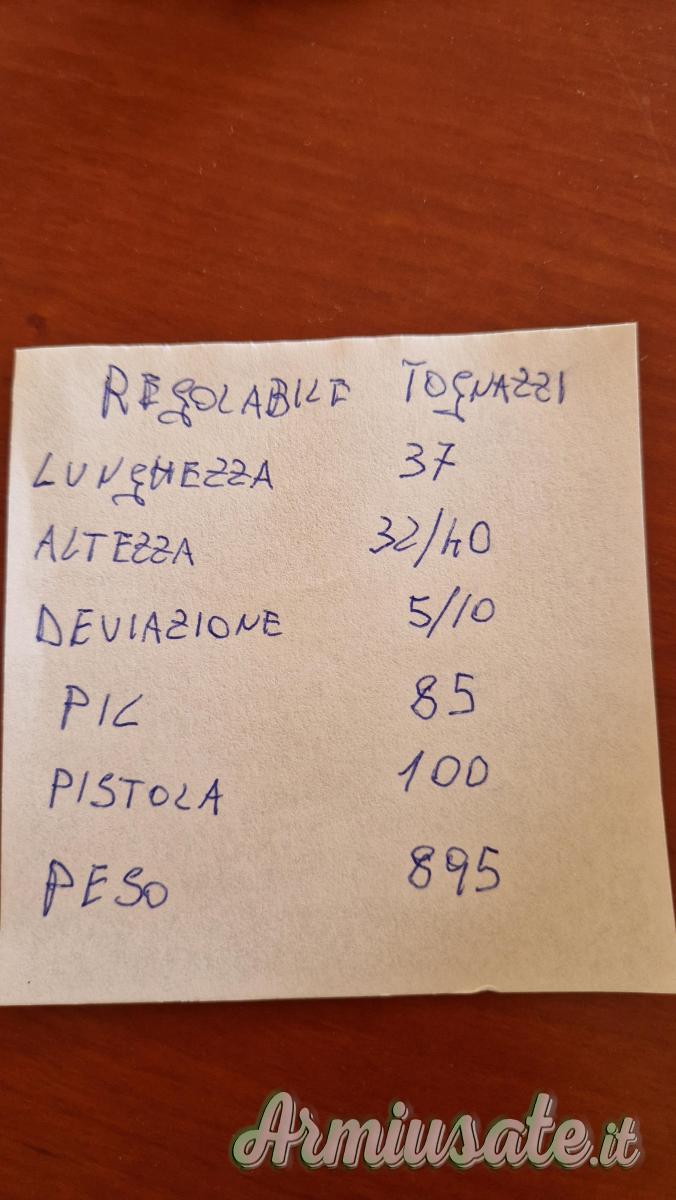 REGOLABILE TOGNAZZI
LUNGHEZZA 37
ALTEZZA 32/40
DEVIAZIONE 5/10
PIL 85
PISTOLA 100
PESO 895
Armiusate.it